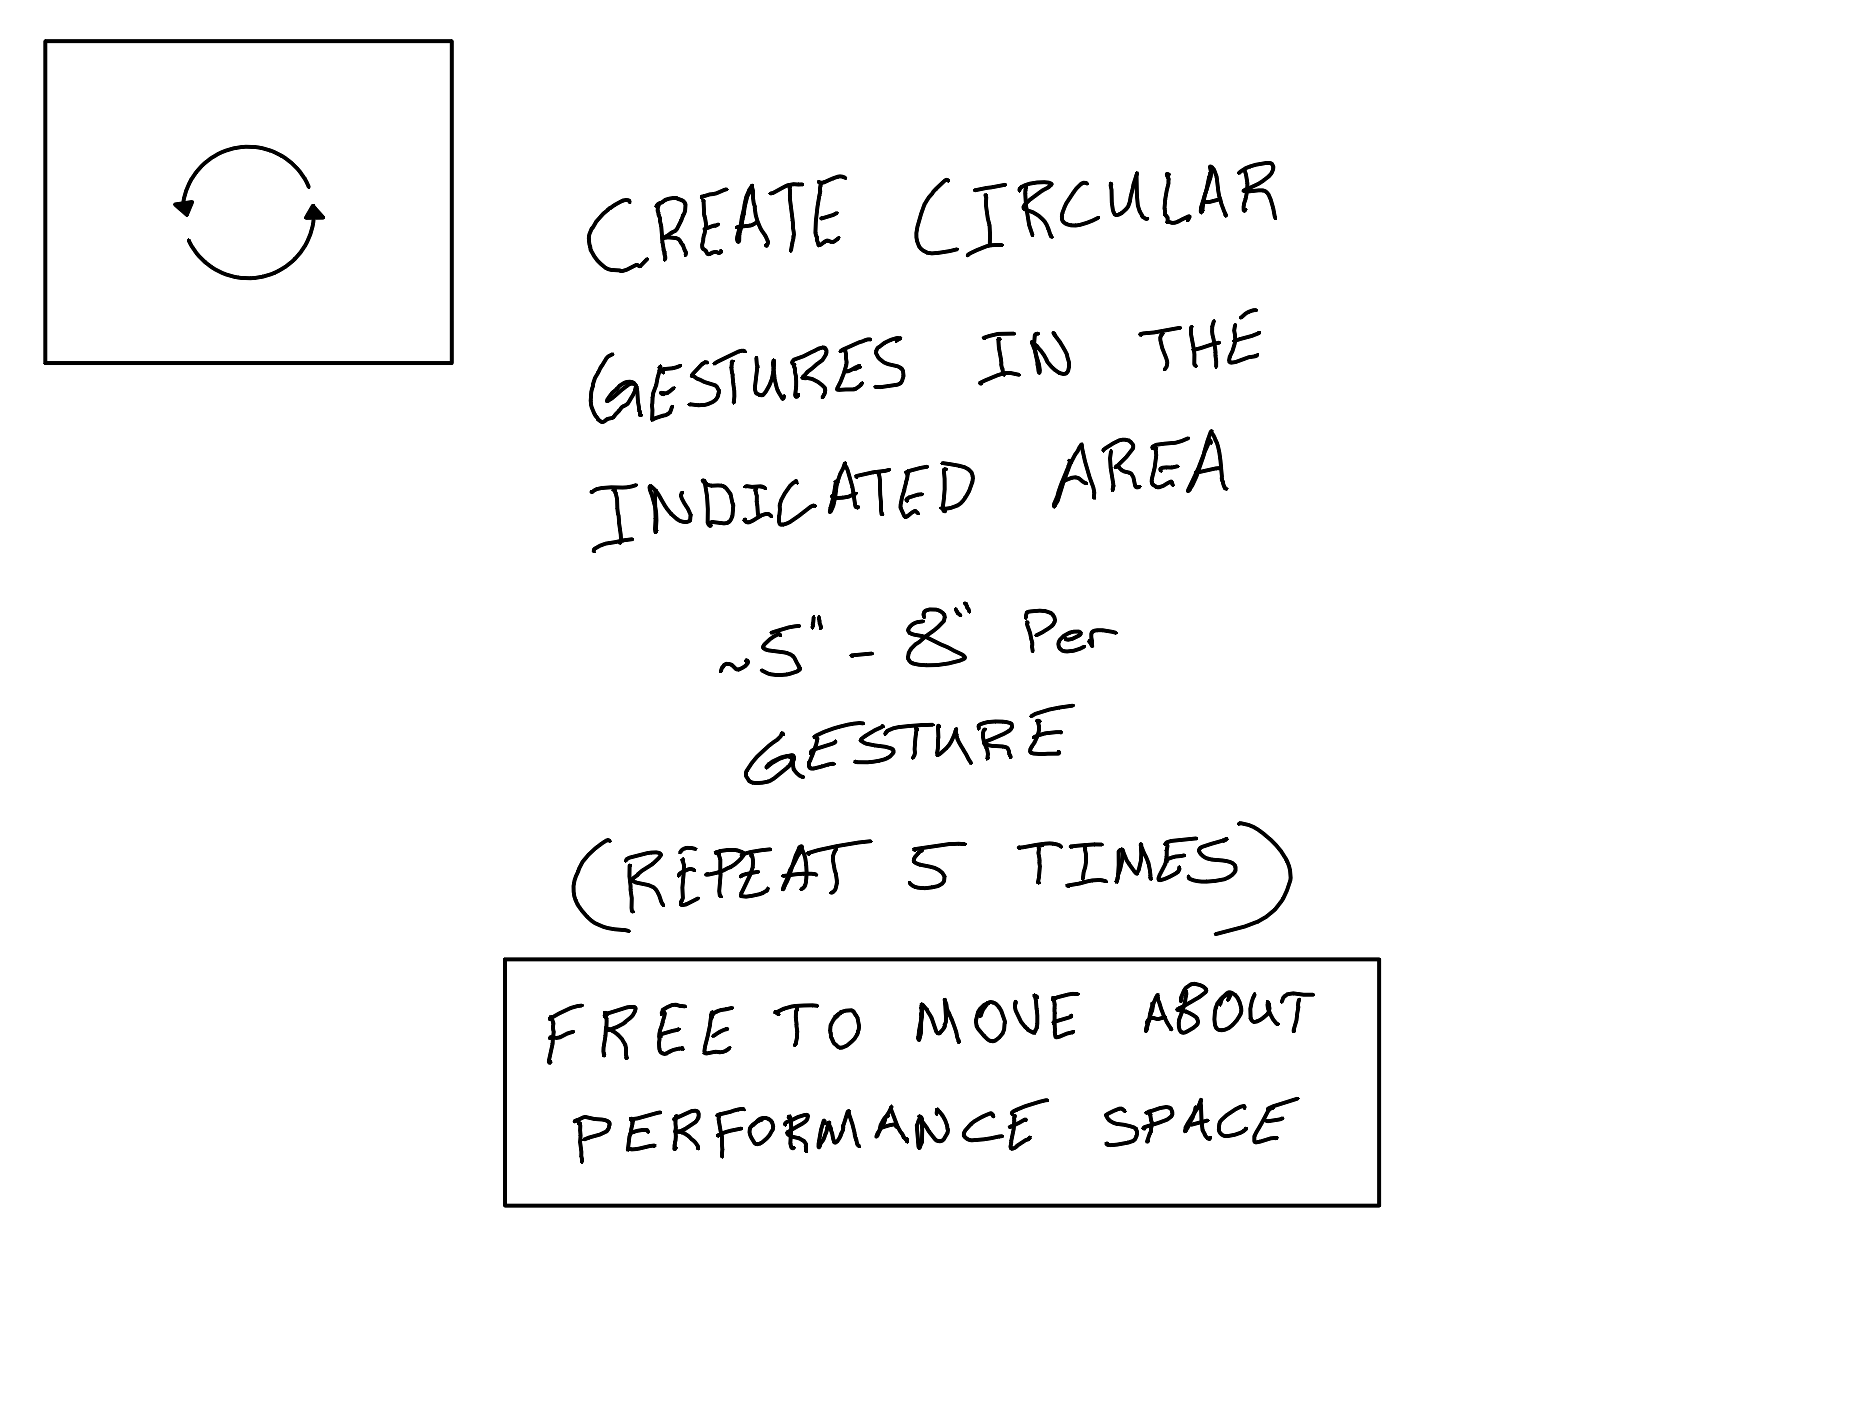 CREATE CIRCULAR
GESTURES IN THE
INDICATED AREA
~5" - 8" Per
GESTURE
(REPEAT 5 TIMES)
FREE TO MOVE ABOUT
PERFORMANCE SPACE